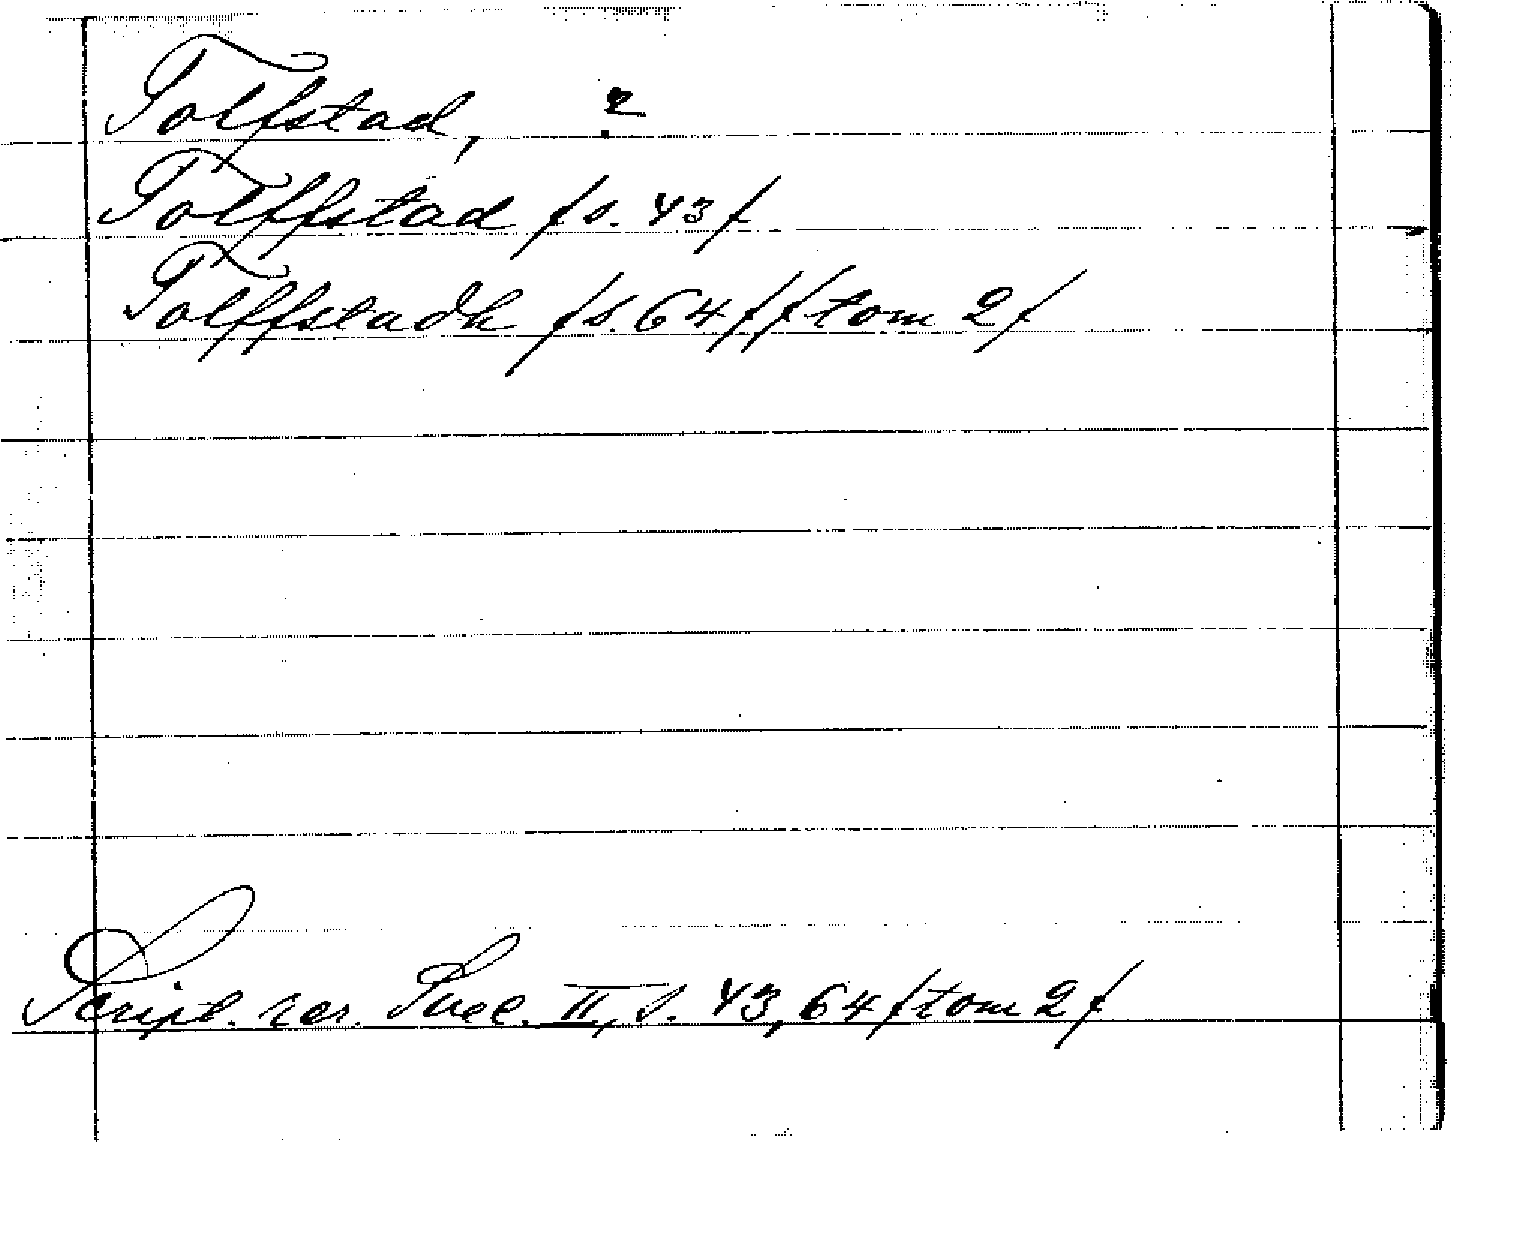 Tolfstad, ?
Tolffstad /s. 43/
Tolffstadh /s. 64/ /tom 2/
Script. rer. Suec. II, s. 43, 64 /tom 2/